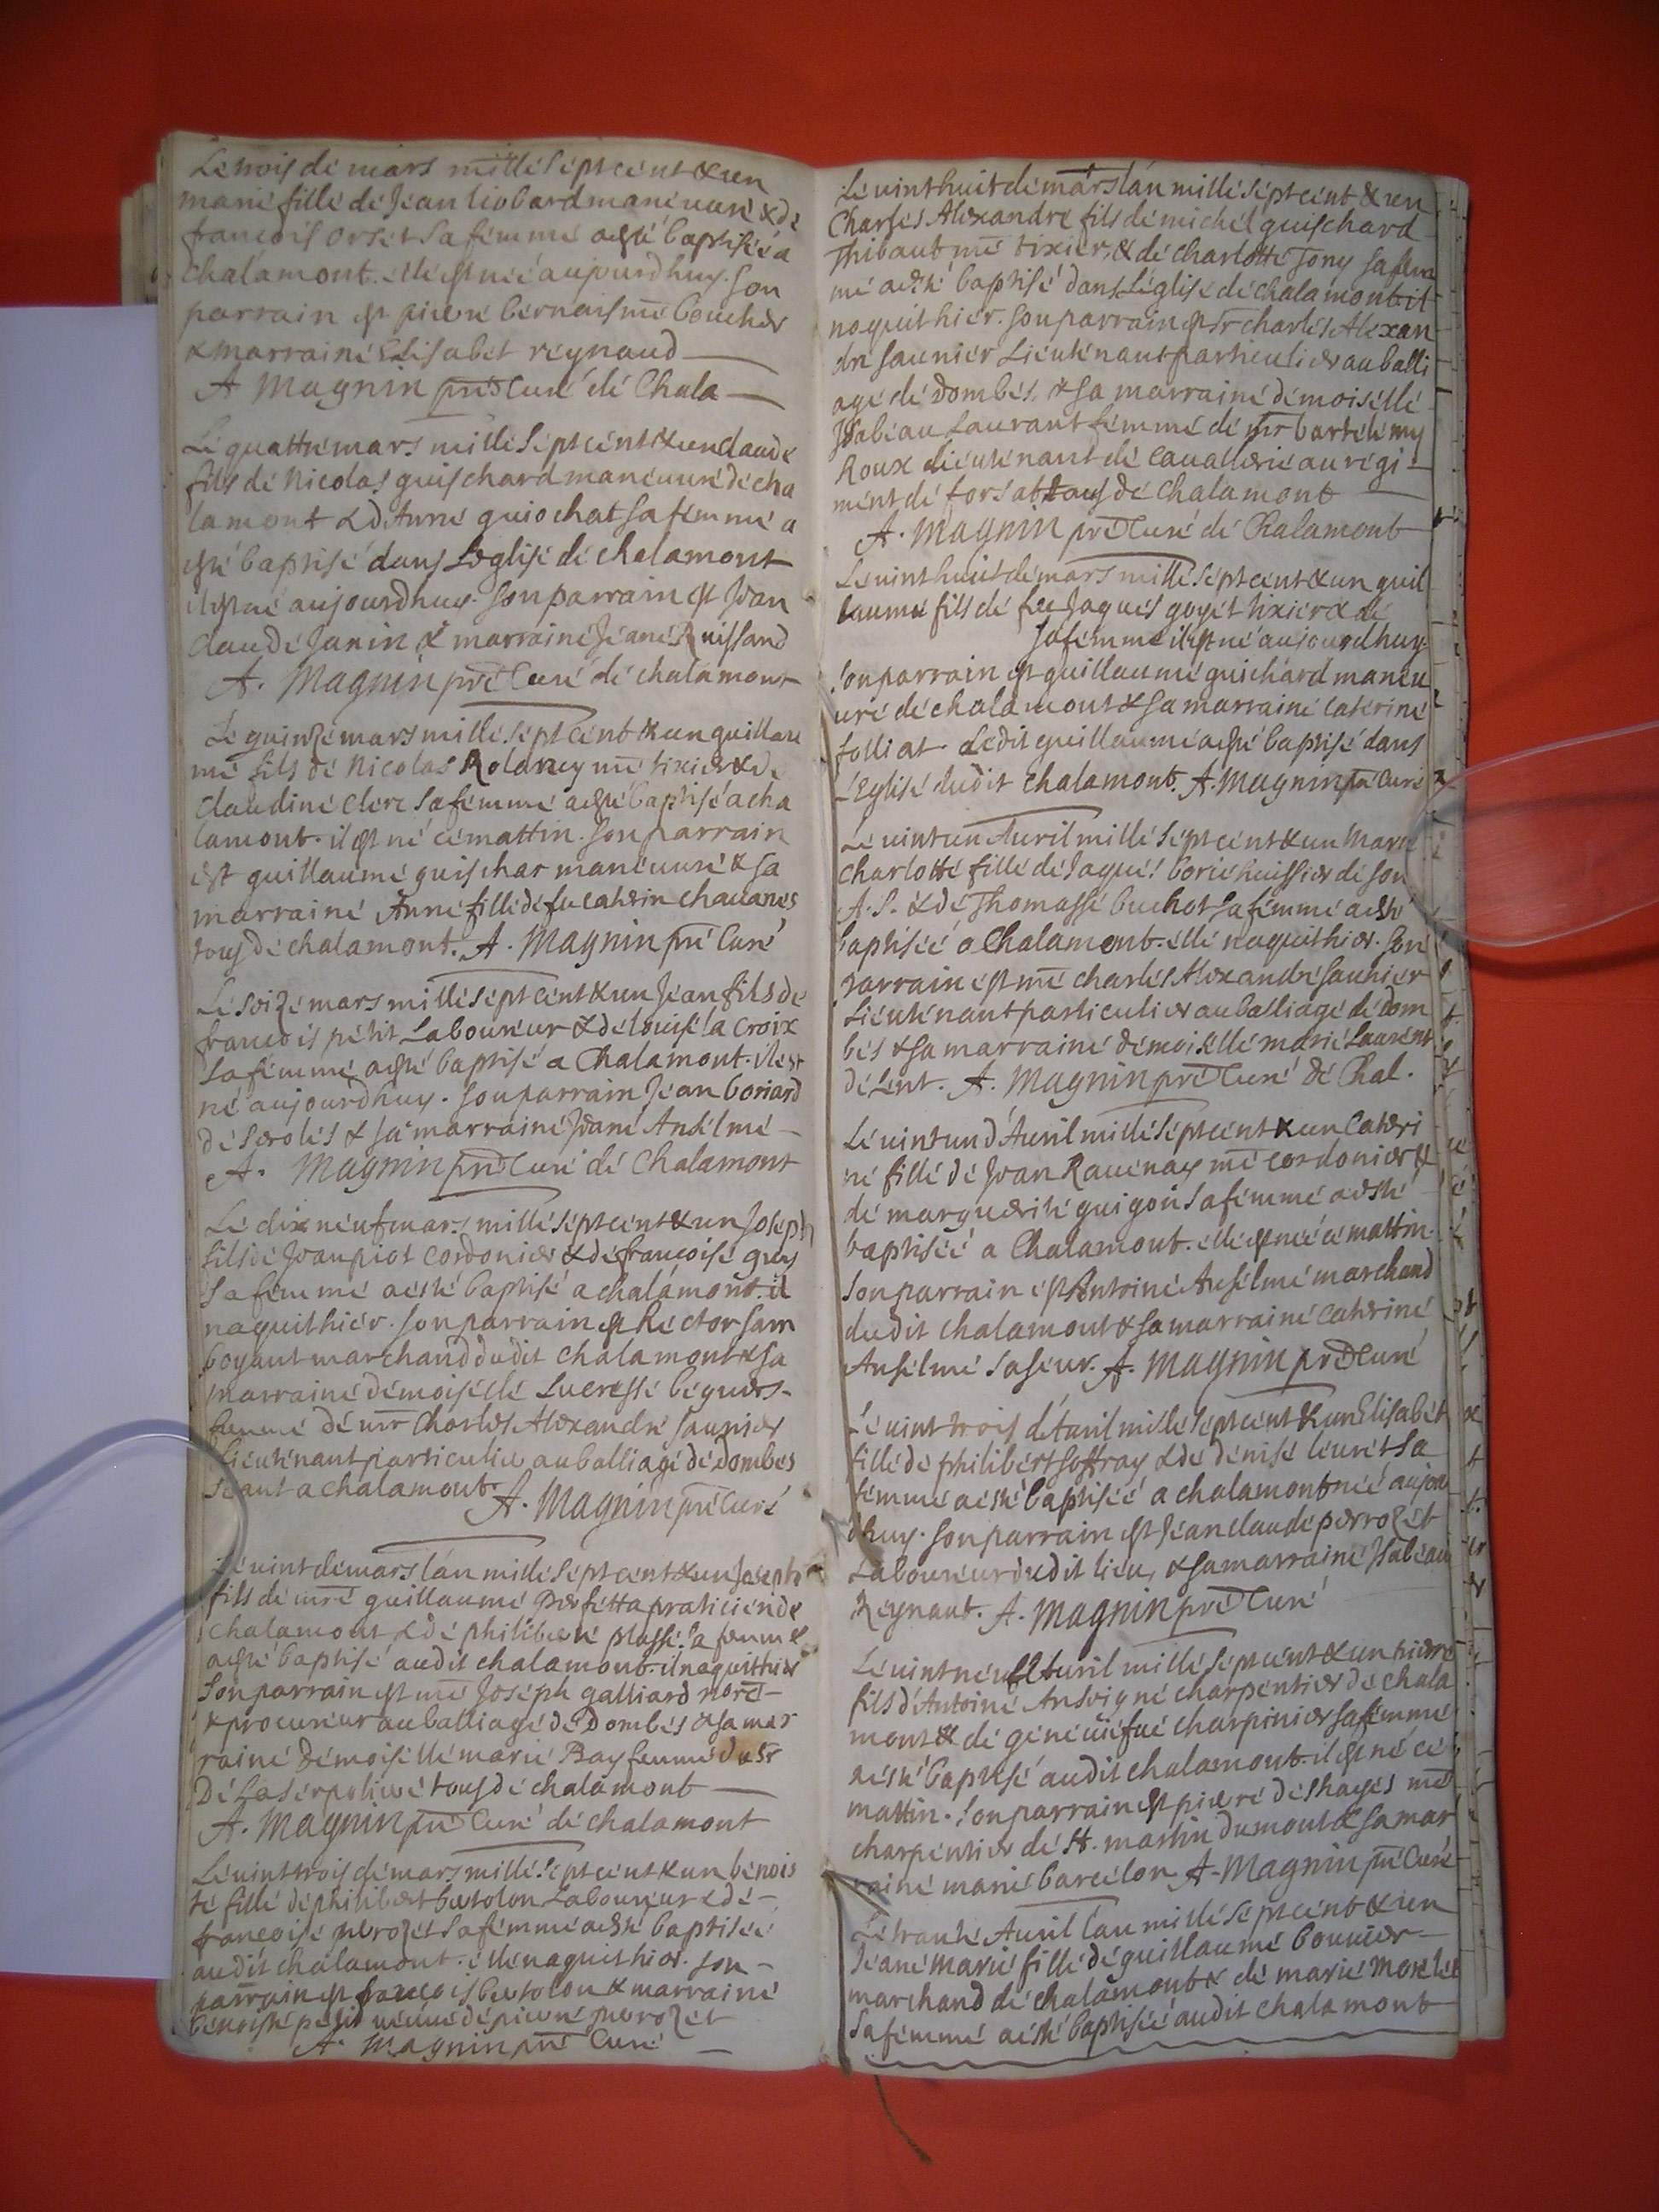 Le trois de mars mille sept cent & un
marie fille de Jean liobard maneuure & de
francois orset sa femme a esté baptisée a
chalamont. elle est née aujourdhuy. son
parrain est pierre bernais me boucher
& marraine Elisabet reynaud
A Magnin pre Curé de Chala
Le quattre mars mille sept cent & un claude
fils de Nicolas guischard maneuure de cha
lamont & d'Anne guiochat sa femme a
esté baptisé dans L'eglise de chalamont
il est né aujourdhuy. son parrain est Jean
claude Janin & marraine Jeane Ruissand
A. Magnin pre Curé de chalamont
Le quinze mars mille sept cent & un guillau
me fils de Nicolas Rolancy me tixier & de
claudine clerc sa femme a esté baptisé a cha
lamont. il est né ce mattin. son parrain
est guillaume guischar maneuure & sa
marraine Anne fille de fu caterin chauanes
tous de chalamont. A. Magnin pre Curé
Le seize mars mille sept cent & un Jean fils de
francois petit Laboureur & de louise la croix
sa femme a esté baptisé a Chalamont. il est
né aujourdhuy. son parrain Jean boriard
de seroles & sa marraine Jeane Anselme
A. Magnin pre Curé de Chalamont
Le dix neuf mars mille sept cent & un Joseph
fils de Jean piot cordonier & de francoise guy
sa femme a esté baptisé a chalamont. il
naquit hier. son parrain est hector sam
boyant marchand dudit chalamont & sa
marraine demoiselle Lucresse beguers
femme de mr Charles Alexandre saunier
lieutenant particulier au balliage de Dombes
seant a chalamont.
A. Magnin pre Curé
Le uint de mars l'an mille sept cent & un Joseph
fils de mre guillaume Perfetta praticien de
chalamont & de philiberte plasse sa femme
a esté baptisé audit chalamont. il naquit hier
son parrain est me Joseph galliard nore
& procureur au balliage de Dombes & sa mar
raine demoiselle marie Bay femme du sr
De Laserpoliere tous de chalamont
A. Magnin pre Curé de chalamont
Le uint trois de mars mille sept cent & un benois
te fille de philibert bertolon Laboureur & de
francoise perozet sa femme a esté baptisée
audit chalamont. elle naquit hier. son
parrain est francois bertolon & marraine
benoiste petit ueuue de pierre perozet
A. Magnin pre Curé
Le uint huit de mars l'an mille sept cent & un
Charles Alexandre fils de michel guischard
Thibaut me tixier, & de charlotte Jony sa fem
me a esté baptisé dans L'eglise de chalamont il
naquit hier. son parrain est sr charles Alexan
dre saunier Lieutenant particulier au balli
age de Dombes, & sa marraine demoiselle
Isabeau Laurant femme de mr bartelemy
Roux Lieutenant de caualerie au regi
ment de forsat tous de chalamont
A. Magnin pre Curé de Chalamont
Le uint huit de mars mille sept cent & un guil
laume fils de feu Jaques goyet tixier & de
sa femme il est né aujourdhuy.
son parrain est guillaume guichard maneu
ure de chalamont & sa marraine caterine
folliat. Ledit guillaume a esté baptisé dans
L'Eglise dudit chalamont. A. Magnin pre Curé
Le uint un Auril mille sept cent & un Marie
charlotte fille de Jaques borie huissier de son
A. S. & de Thomasse buchot sa femme a esté
baptisée a Chalamont. elle naquit hier. son
parrain est me charles Alexandre saunier
Lieutenant particulier au balliage de Dom
bes & sa marraine demoiselle marie Laurent
de Lent. A. Magnin pre Curé de Chal.
Le uint un d'Auril mille sept cent & un Cateri
ne fille de Jean Rauenay me cordonier &
de marguerite guigon sa femme a esté
baptisée a Chalamont. elle est née ce mattin.
son parrain est Antoine Anselme marchand
dudit chalamont & sa marraine caterine
Anselme sa seur. A. Magnin pre Curé
Le uint trois d'Auril mille sept cent & un Elisabet
fille de philibert soffray & de denise leuret sa
femme a esté baptisée a chalamont née aujour
dhuy. son parrain est Jean claude perrozet
Laboureur dudit lieu, & sa marraine Isabeau
Reynaut. A. Magnin pre Curé
Le uint neuf Auril mille sept cent & un pierre
fils d'Antoine Ansoigne charpentier de chala
mont & de geneuiefue charpinier sa femme
a esté baptisé audit chalamont. il est né ce
mattin. son parrain est pierre deshayes me
charpentier de st. martin du mont & sa mar
raine marie barcelon A. Magnin pre Curé
Le trante Auril l'an mille sept cent & un
Jeane marie fille de guillaume bouuier
marchand de chalamont & de marie morelet
sa femme a esté baptisée audit chalamont